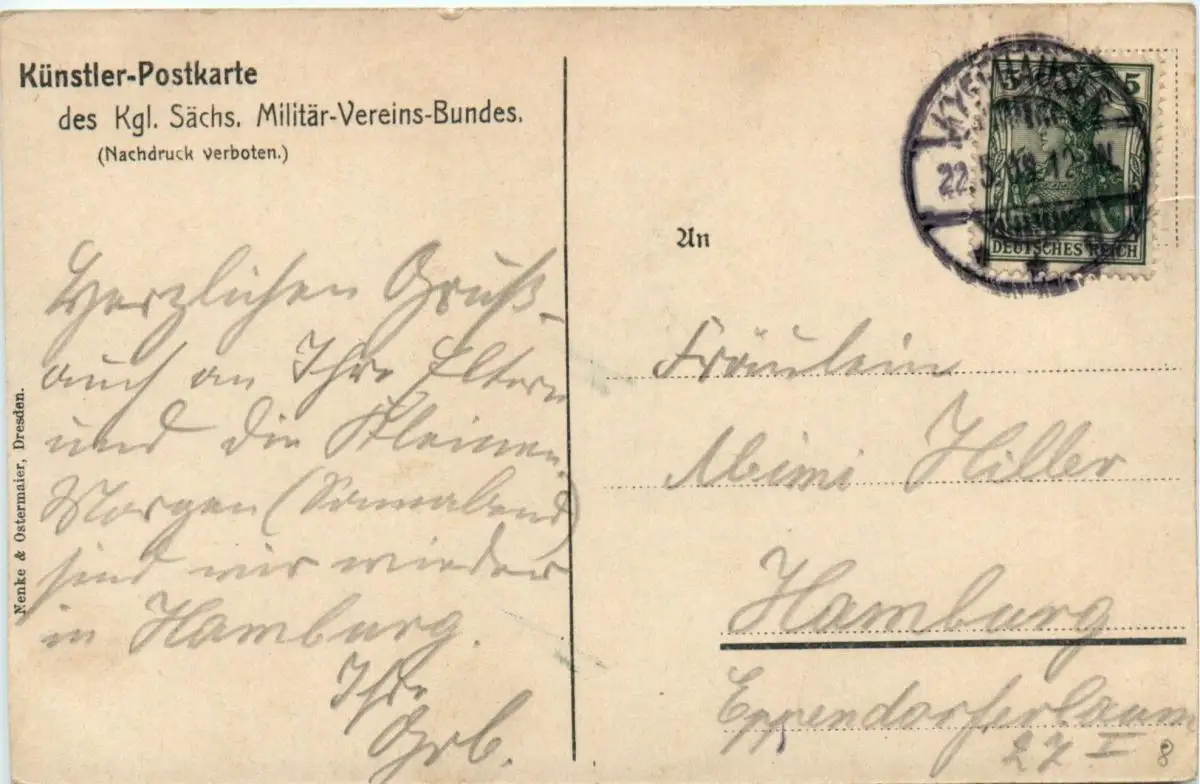 Künstler-Postkarte
des Kgl. Sächs. Militär-Vereins-Bundes.
(Nachdruck verboten.)
Herzlichen Gruß
auch an Ihre Eltern
und die Kleinen.
Morgen (Sonnabend)
sind wir wieder
in Hamburg.
Ihr
Nenke & Ostermaier, Dresden.
KYFFHÄUSER
22.5.09.12
5 5
DEUTSCHES REICH
An
Fräulein
Mimi Hiller
Hamburg
Eppendorferbaum
27 I
8